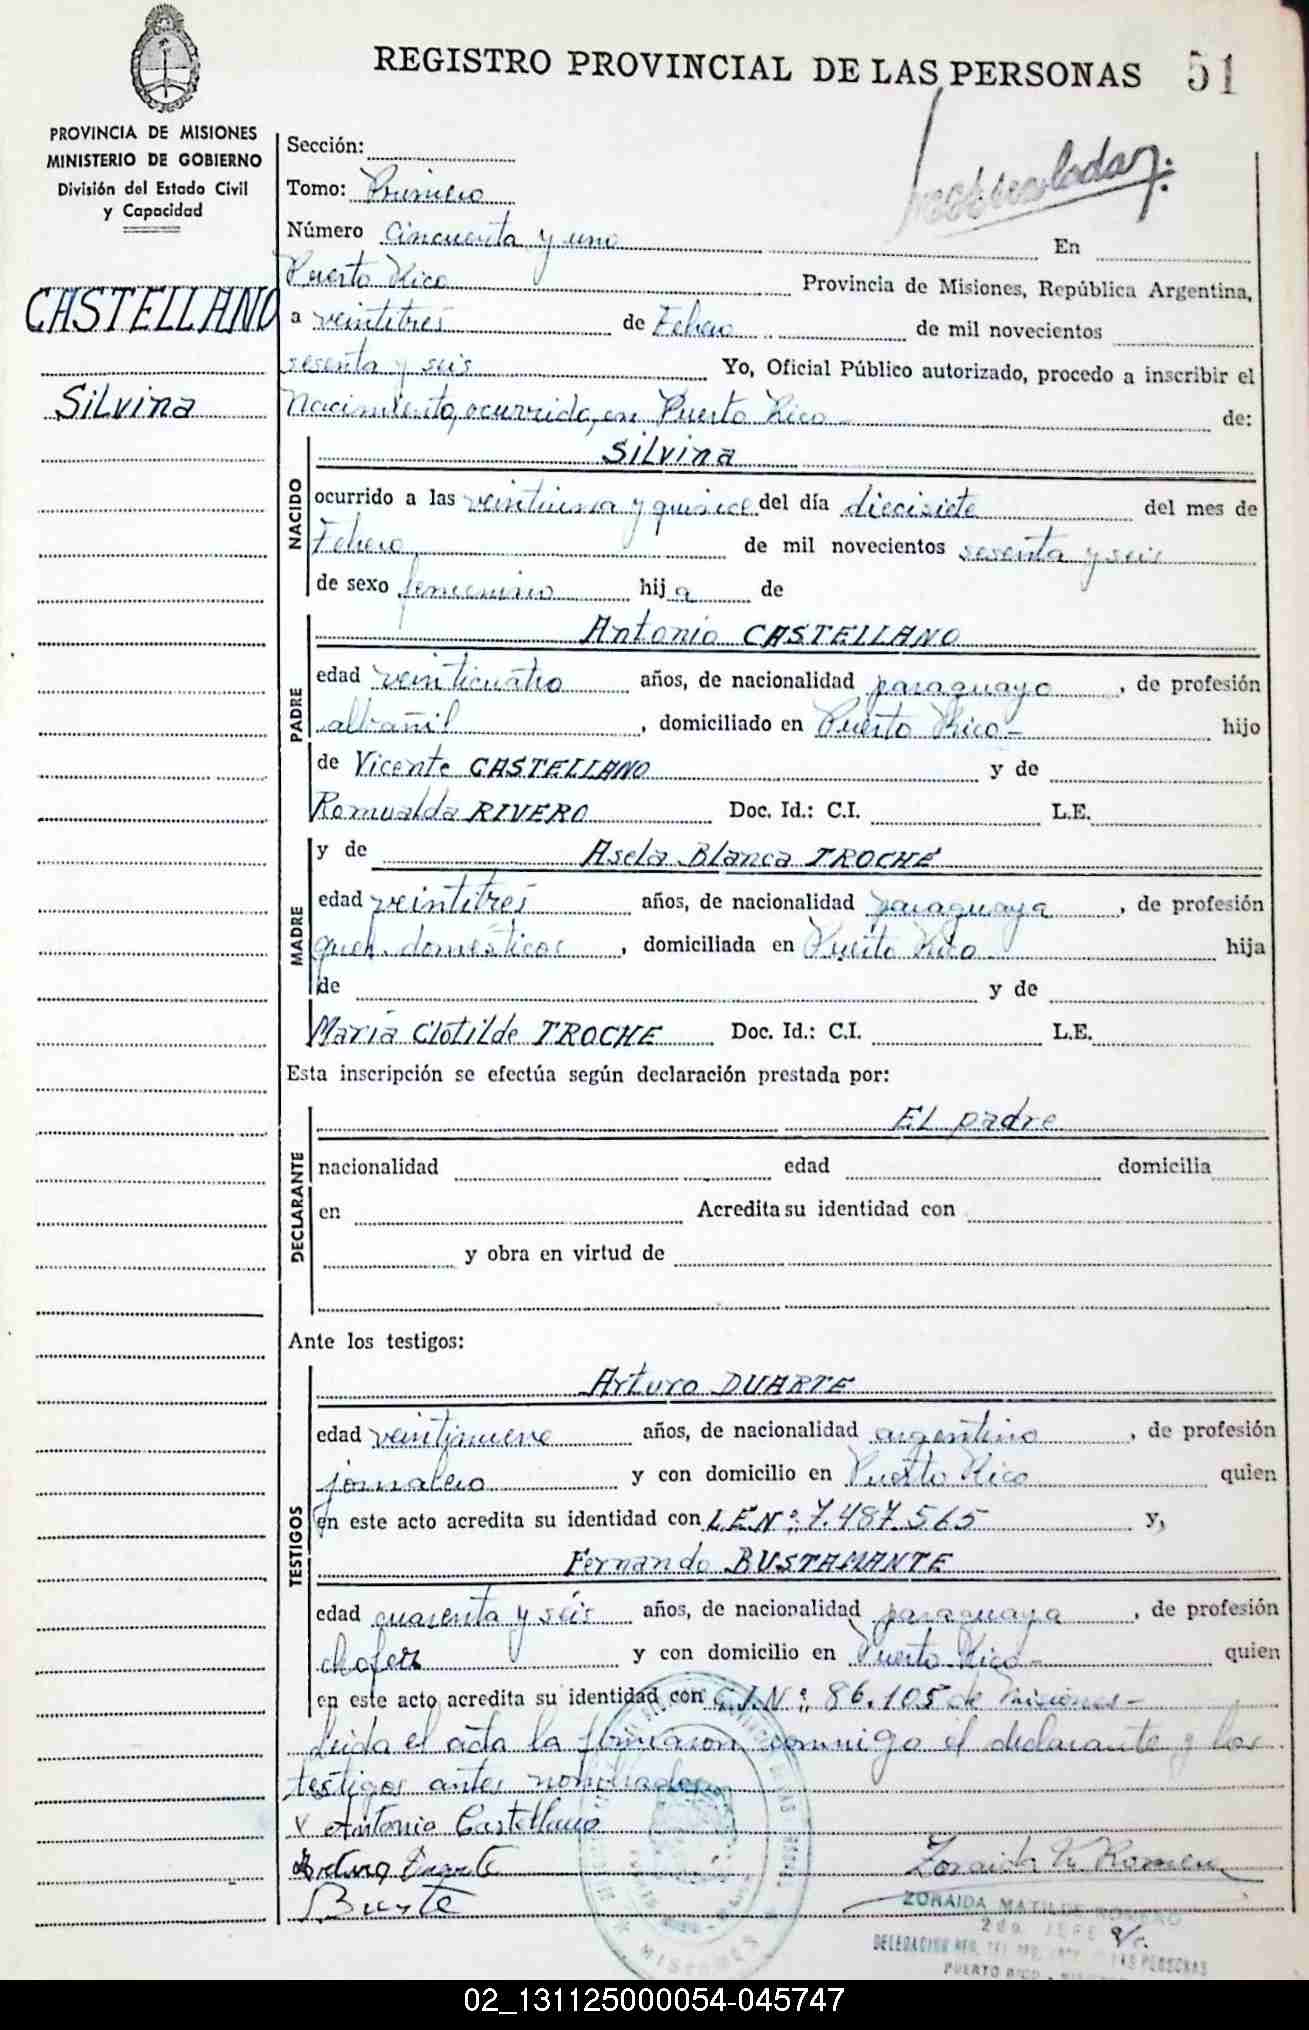 REGISTRO PROVINCIAL DE LAS PERSONAS 51
PROVINCIA DE MISIONES
MINISTERIO DE GOBIERNO
División del Estado Civil
y Capacidad
CASTELLANO
Silvina
Sección:
Tomo: Primero
Número Cincuenta y uno En
Puerto Rico Provincia de Misiones, República Argentina,
a veintitres de Febrero de mil novecientos
sesenta y seis Yo, Oficial Público autorizado, procedo a inscribir el
Nacimiento, ocurrido, en Puerto Rico - de:
NACIDO
Silvina
ocurrido a las veintiuna y quince del día diecisiete del mes de
Febrero de mil novecientos sesenta y seis
de sexo femenino hija de
PADRE
Antonio CASTELLANO
edad veinticuatro años, de nacionalidad paraguayo, de profesión
albañil, domiciliado en Puerto Rico - hijo
de Vicente CASTELLANO y de
Romualda RIVERO Doc. Id.: C.I. L.E.
MADRE
y de Asela Blanca TROCHE
edad veintitres años, de nacionalidad paraguaya, de profesión
queh. domésticos, domiciliada en Puerto Rico hija
de y de
María Clotilde TROCHE Doc. Id.: C.I. L.E.
Esta inscripción se efectúa según declaración prestada por:
DECLARANTE
El padre
nacionalidad edad domicilia
en Acredita su identidad con
y obra en virtud de
Ante los testigos:
TESTIGOS
Arturo DUARTE
edad veintinueve años, de nacionalidad argentino, de profesión
jornalero y con domicilio en Puerto Rico quien
en este acto acredita su identidad con L.E.Nº: 7.487.565 y,
Fernando BUSTAMANTE
edad cuarenta y seis años, de nacionalidad paraguaya, de profesión
chofer y con domicilio en Puerto Rico - quien
en este acto acredita su identidad con C.I.Nº: 86.105 de Misiones -
Leida el acta la firmaron conmigo el declarante y los
testigos antes nombrados
Antonio Castellano
Arturo Duarte
Zoraida M. Romero
ZORAIDA MATILDE ROMERO
2do. JEFE
DELEGACION LAS PERSONAS
PUERTO RICO -
MISIONES
02_131125000054-045747